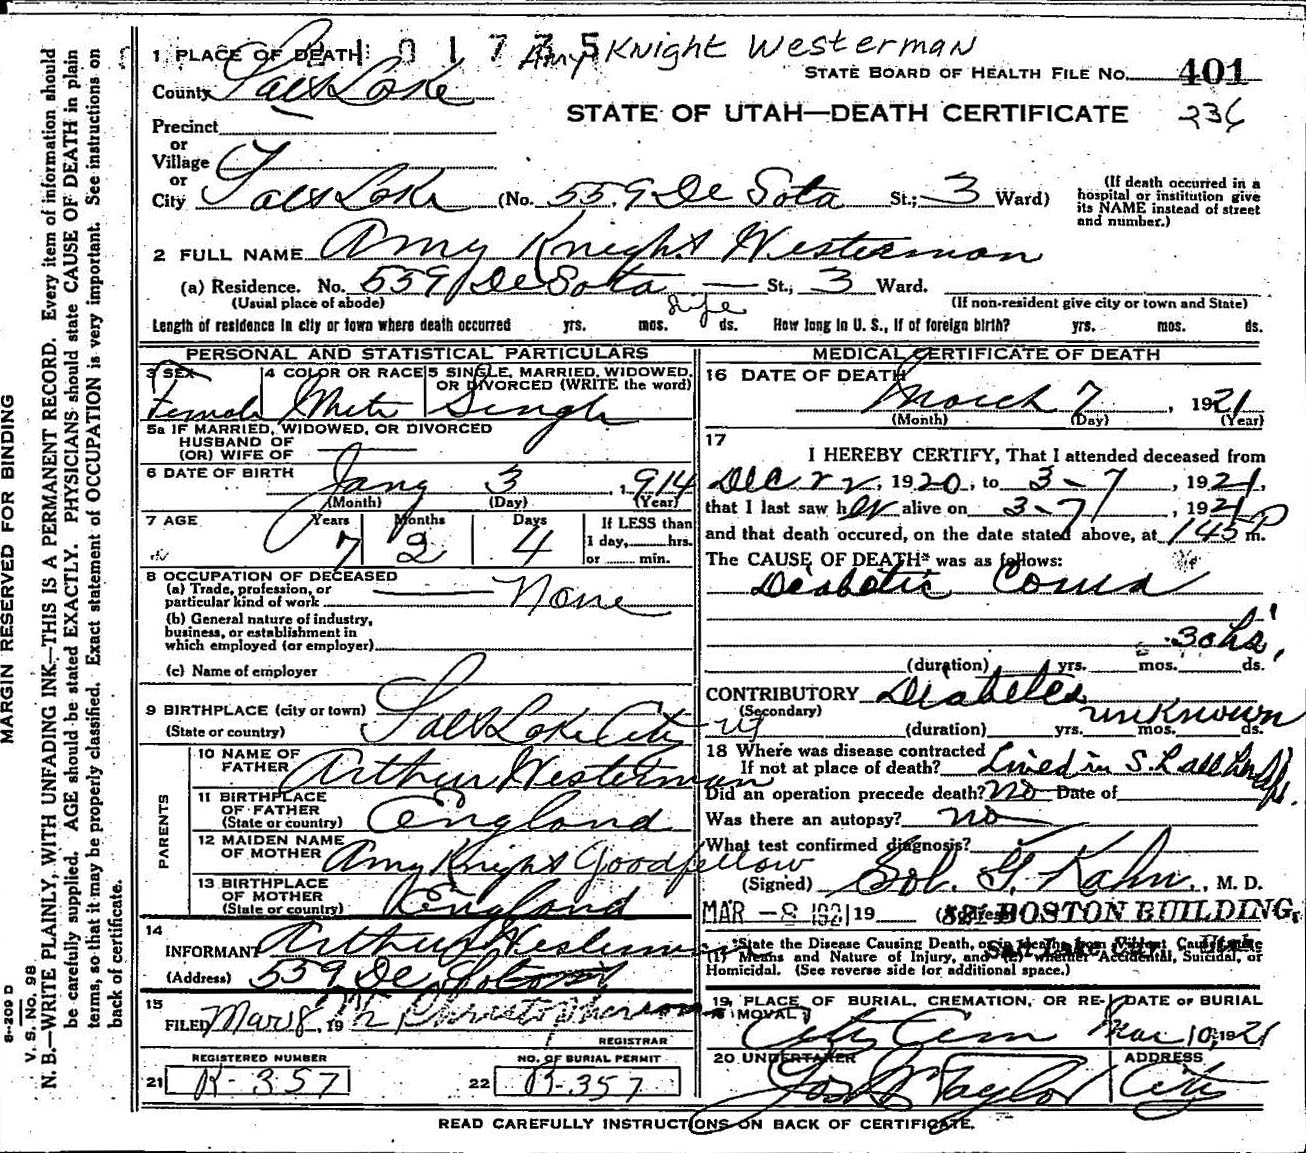 Amy Knight Westerman
1 PLACE OF DEATH
STATE BOARD OF HEALTH FILE No. 401
County Salt Lake
STATE OF UTAH—DEATH CERTIFICATE
236
Precinct
or
Village
or
City Salt Lake (No. 559 De Sota St.; 3 Ward)
(If death occurred in a hospital or institution give its NAME instead of street and number.)
2 FULL NAME Amy Knight Westerman
(a) Residence. No. 559 De Sota St., 3 Ward.
(Usual place of abode) (If non-resident give city or town and State)
Length of residence in city or town where death occurred yrs. mos. ds. Life How long in U. S., if of foreign birth? yrs. mos. ds.
PERSONAL AND STATISTICAL PARTICULARS
3 SEX Female
4 COLOR OR RACE White
5 SINGLE, MARRIED, WIDOWED, OR DIVORCED (WRITE the word) Single
5a IF MARRIED, WIDOWED, OR DIVORCED
HUSBAND OF
(OR) WIFE OF
6 DATE OF BIRTH Jany 3, 1914
(Month) (Day) (Year)
7 AGE Years Months Days If LESS than
7 2 4 1 day, hrs.
or min.
8 OCCUPATION OF DECEASED
(a) Trade, profession, or
particular kind of work None
(b) General nature of industry,
business, or establishment in
which employed (or employer)
(c) Name of employer
9 BIRTHPLACE (city or town)
(State or country) Salt Lake City Ut
PARENTS
10 NAME OF FATHER Arthur Westerman
11 BIRTHPLACE OF FATHER
(State or country) England
12 MAIDEN NAME OF MOTHER Amy Knight Goodfellow
13 BIRTHPLACE OF MOTHER
(State or country) England
14
INFORMANT Arthur Westerman
(Address) 559 De Sota
15
FILED Mar 8, 19 Christopherson
REGISTRAR
REGISTERED NUMBER
21 R-357
NO. OF BURIAL PERMIT
22 B-357
MEDICAL CERTIFICATE OF DEATH
16 DATE OF DEATH
March 7, 1921
(Month) (Day) (Year)
17
I HEREBY CERTIFY, That I attended deceased from
Dec 22, 1920, to 3-7, 1921,
that I last saw her alive on 3-7, 1921
and that death occured, on the date stated above, at 145 P m.
The CAUSE OF DEATH* was as follows:
Diabetic Coma
30 hs.
(duration) yrs. mos. ds.
CONTRIBUTORY Diabetes
(Secondary) unknown
(duration) yrs. mos. ds.
18 Where was disease contracted
If not at place of death? Lived in S. L all her life.
Did an operation precede death? No Date of
Was there an autopsy? no
What test confirmed diagnosis?
(Signed) Sol. G. Kahn, M. D.
MAR -8 1921 19 (Address) BOSTON BUILDING,
*State the Disease Causing Death, or in Deaths from Violent Causes state
(1) Means and Nature of Injury, and (2) whether Accidental, Suicidal, or
Homicidal. (See reverse side for additional space.)
19 PLACE OF BURIAL, CREMATION, OR REMOVAL DATE OF BURIAL
City Cem Mar 10, 1921
20 UNDERTAKER ADDRESS
Jos Wm Taylor City
READ CAREFULLY INSTRUCTIONS ON BACK OF CERTIFICATE.
MARGIN RESERVED FOR BINDING
S-209 D
V. S. No. 98
N. B.—WRITE PLAINLY, WITH UNFADING INK—THIS IS A PERMANENT RECORD. Every item of information should
be carefully supplied. AGE should be stated EXACTLY. PHYSICIANS should state CAUSE OF DEATH in plain
terms, so that it may be properly classified. Exact statement of OCCUPATION is very important. See instructions on
back of certificate.